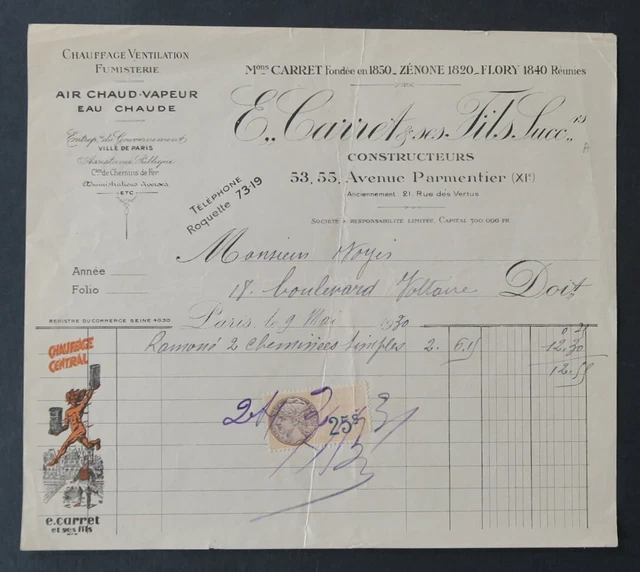 CHAUFFAGE VENTILATION
FUMISTERIE
AIR CHAUD-VAPEUR
EAU CHAUDE
Entrep. du Gouvernement
VILLE DE PARIS
Assistance Publique
Cies de Chemins de Fer
Administrations diverses
ETC
Mons CARRET fondée en 1850_ZÉNONE 1820_FLORY 1840 Réunies
E. Carret & ses Fils Succrs
CONSTRUCTEURS
53, 55, Avenue Parmentier (XIe)
Anciennement 21 Rue des Vertus
TÉLÉPHONE
Roquette 73-19
SOCIÉTÉ A RESPONSABILITÉ LIMITÉE, CAPITAL 500 000 FR
Monsieur Noyés
Année
Folio
18 boulevard Voltaire Doit
Paris, le 9 Mai 1930
REGISTRE DU COMMERCE SEINE 40.30
0.25
Ramoné 2 cheminées simples 2. 6.15 12.30
12.55
CHAUFFAGE
CENTRAL
25c
e. carret
et ses fils